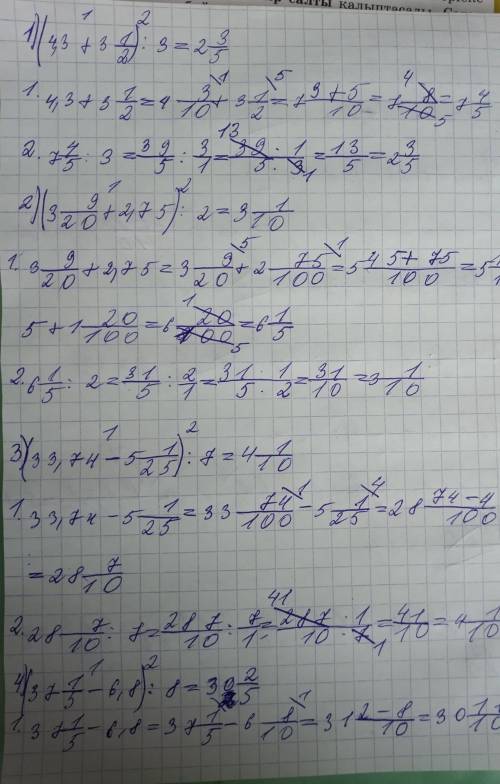 қалыптасады.
1) (4,3 + 3 1/2) : 3 = 2 3/5
1. 4,3 + 3 1/2 = 4 3/10 + 3 1/2 = 7 (3+5)/10 = 7 8/10 = 7 4/5
2. 7 4/5 : 3 = 39/5 : 3/1 = 39/5 · 1/3 = 13/5 = 2 3/5
2) (3 9/20 + 2,75) : 2 = 3 1/10
1. 3 9/20 + 2,75 = 3 9/20 + 2 75/100 = 5 (45+75)/100 = 5
5 + 1 20/100 = 6 20/100 = 6 1/5
2. 6 1/5 : 2 = 31/5 : 2/1 = 31/5 · 1/2 = 31/10 = 3 1/10
3) (33,74 - 5 1/25) : 7 = 4 1/10
1. 33,74 - 5 1/25 = 33 74/100 - 5 1/25 = 28 (74-4)/100
= 28 7/10
2. 28 7/10 : 7 = 287/10 : 7/1 = 287/10 · 1/7 = 41/10 = 4 1/10
4) (37 1/5 - 6,8) : 8 = 2/5
1. 37 1/5 - 6,8 = 37 1/5 - 6 8/10 = 31 (2-8)/10 = 30